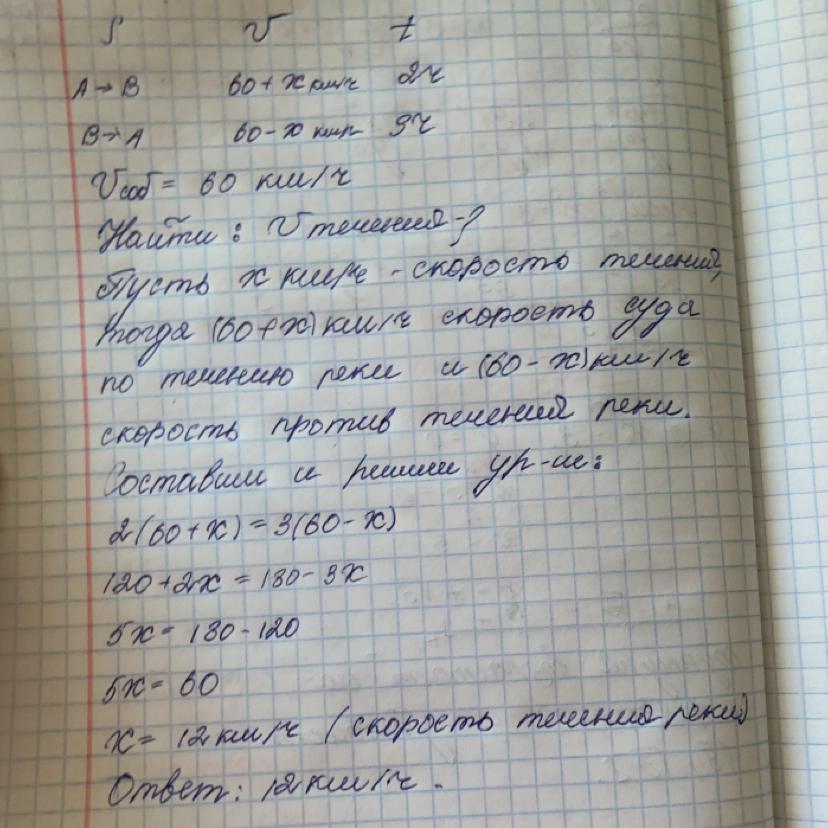 S V t
A → B 60 + x км/ч 2ч
B → A 60 - x км/ч 3ч
Vсоб = 60 км/ч
Найти: V течения - ?
Пусть x км/ч - скорость течения,
тогда (60 + x) км/ч скорость суда
по течению реки и (60 - x) км/ч
скорость против течений реки.
Составим и решим ур-ие:
2(60 + x) = 3(60 - x)
120 + 2x = 180 - 3x
5x = 180 - 120
5x = 60
x = 12 км/ч (скорость течения реки)
Ответ: 12 км/ч.